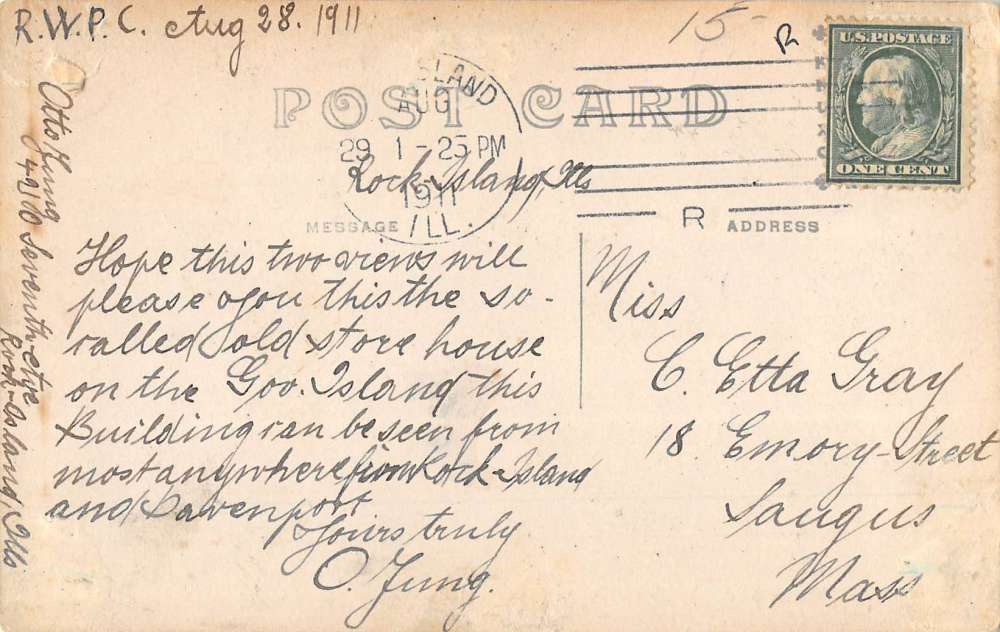 R.W.P.C. Aug 28. 1911
15-
R
U.S. POSTAGE
ONE CENT
POST CARD
ISLAND
AUG
29 1-25 PM
1911
ILL.
R
Rock Island, Ills
MESSAGE
ADDRESS
Hope this two views will
please you this the so-
called old store house
on the Gov. Island this
Building can be seen from
most anywhere from Rock-Island
and Davenport
Yours truly
O. Jung.
Otto Jung
Seventh
Rock-Island, Ills
Miss
C. Etta Gray
18 Emory-Street
Saugus
Mass